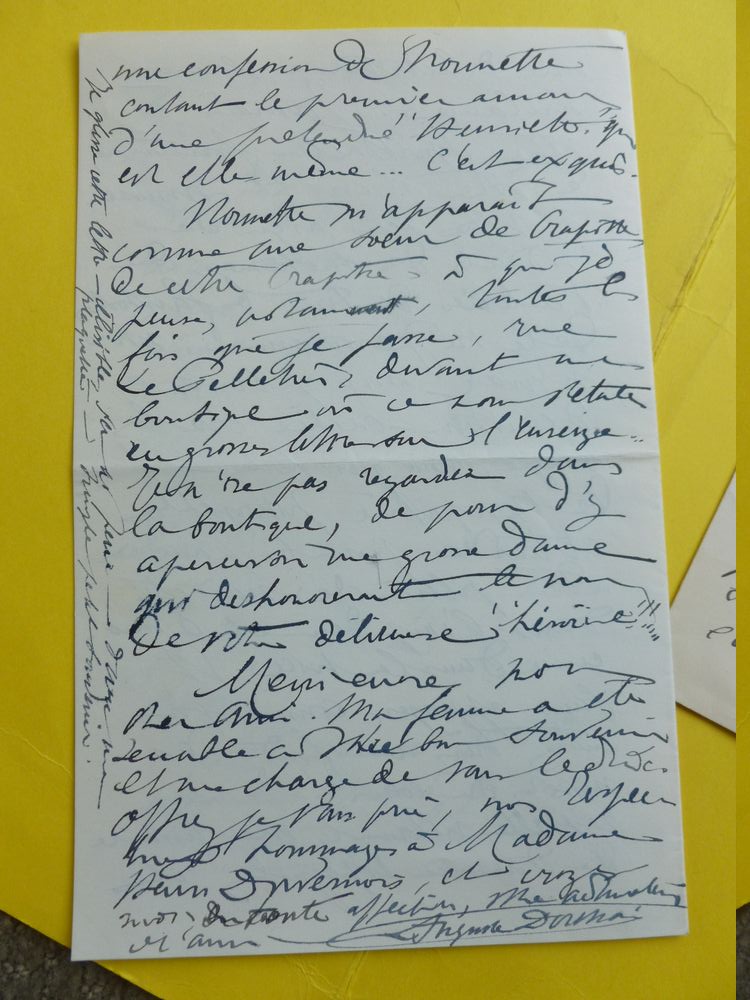 une confession de Nounette
contant le premier amour
d'une prétendue "Henriette" qui
est elle même... C'est exquis.
Nounette m'apparaît
comme une soeur de Crapotte,
de cette Crapotte à qui je
pense, notamment, toutes les
fois que je passe, rue
Le Peletier, devant une
boutique où ce nom s'étale
en grosses lettres sur l'enseigne...
Je n'ose pas regarder dans
la boutique, de peur d'y
apercevoir une grosse dame
qui deshonorerait le nom
de votre délicieuse "héroïne"!!...
Merci encore, mon
cher Ami. Ma femme a été
sensible à votre bon souvenir
et me charge de vous le dire.
Offrez, je vous prie, nos respectueux
hommages à Madame
Henri Duvernois, et croyez
moi en toute affection, votre admirateur
et ami
Auguste Dorchain
Je glisse cette lettre
plaquette — simple petit souvenir.